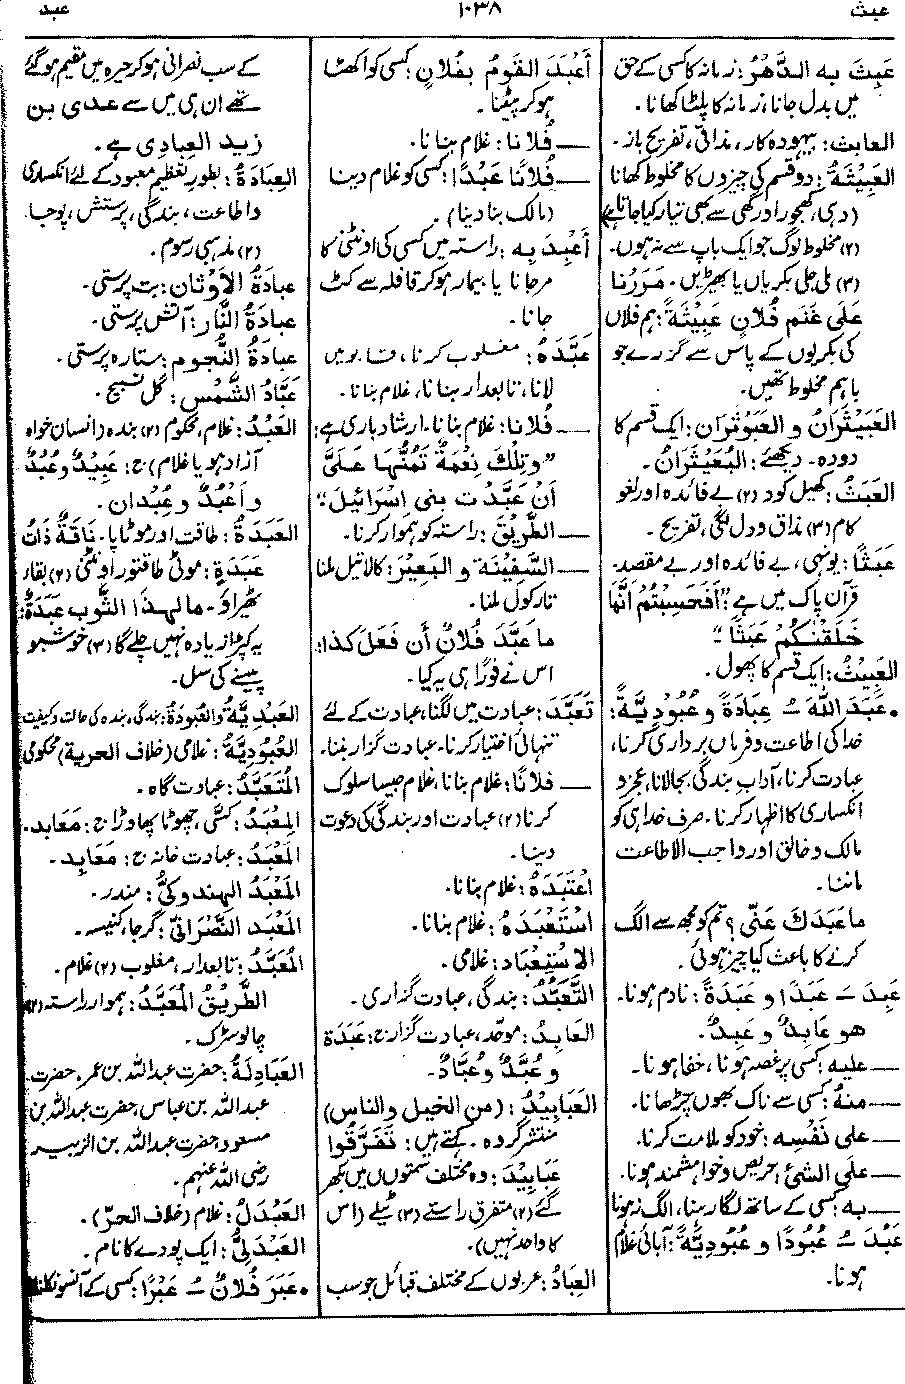 عبث
۱۰۳۸
عبد
عَبِثَ به الدَّهْرُ: زمانہ کا کسی کے حق
میں بدل جانا، زمانہ کا پلٹا کھانا۔
العابث: بیہودہ کار، مذاقی، تفریح باز۔
العَبِيْثَةُ: دو قسم کی چیزوں کا مخلوط کھانا
(دہی، کھجور اور گھی سے بھی تیار کیا جاتا ہے)
(۲) مخلوط لوگ جو ایک باپ سے نہ ہوں۔
(۳) ملی جلی بکریاں یا بھیڑیں۔ مَرَرْنا
عَلَى غَنَمِ فُلانٍ عَبِيْثَةً: ہم فلاں
کی بکریوں کے پاس سے گزرے جو
باہم مخلوط تھیں۔
العَبَيْثَرَانُ و العَبَوْثَرَان: ایک قسم کا
دودہ۔ دیکھئے: البُعَيْثَرَانُ۔
العَبَثُ: کھیل کود (۲) بے فائدہ اور لغو
کام (۳) مذاق و دل لگی، تفریح۔
عَبَثًا: یونہی، بے فائدہ اور بے مقصد۔
قرآن پاک میں ہے: "أَفَحَسِبْتُمْ أَنَّمَا
خَلَقْنٰكُمْ عَبَثًا"
العَبِيْثُ: ایک قسم کا پھول۔
• عَبَدَ اللهَ ــُـ عِبَادَةً و عُبُوْدِيَّةً:
خدا کی اطاعت و فرماں برداری کرنا،
عبادت کرنا، آداب بندگی بجا لانا، عجز و
انکساری کا اظہار کرنا۔ صرف خدا ہی کو
مالک و خالق اور واجب الاطاعت
ماننا۔
ماعَبَدَكَ عَنِّي؟ تم کو مجھ سے الگ
کرنے کا باعث کیا چیز ہوئی۔
عَبِدَ ــَـ عَبَدًا و عَبَدَةً: نادم ہونا۔
هو عَابِدٌ و عَبِدٌ۔
— عليه: کسی پر غصہ ہونا، خفا ہونا۔
— منهُ: کسی سے ناک بھوں چڑھانا۔
— على نَفْسِه: خود کو ملامت کرنا۔
— عَلَى الشئِ: حریص و خواہشمند ہونا۔
— به: کسی کے ساتھ لگا رہنا، الگ نہ ہونا
عَبُدَ ــُـ عُبُوْدًا و عُبُوْدِيَّةً: آبائی غلام
ہونا۔
أَعْبَدَ القَوْمُ بِفُلانٍ: کسی کو اکٹھا
ہو کر پیٹنا۔
— فُلانًا: غلام بنانا۔
— فُلانًا عَبْدًا: کسی کو غلام دینا
(مالک بنا دینا)۔
أُعْبِدَ بِه: راستہ میں کسی کی اونٹنی کا
مرجانا یا بیمار ہو کر قافلہ سے کٹ
جانا۔
عَبَّدَهُ: مغلوب کرنا، قابو میں
لانا، تابعدار بنانا، غلام بنانا۔
— فُلانًا: غلام بنانا۔ ارشاد باری ہے:
"وتِلْكَ نِعْمَةٌ تَمُنُّهَا عَلَيَّ
أَنْ عَبَّدْتَ بني إسْرَائيلَ"
— الطَّرِيْقَ: راستہ کو ہموار کرنا۔
— السَّفِيْنَةَ و البَعِيْرَ: کالا تیل ملنا
تارکول ملنا۔
ما عَبَّدَ فُلانٌ أن فَعَلَ كذا:
اس نے فوراً ہی یہ کیا۔
تَعَبَّدَ: عبادت میں لگنا، عبادت کے لئے
تنہائی اختیار کرنا۔ عبادت گزار بننا۔
— فُلانًا: غلام بنانا، غلام جیسا سلوک
کرنا (۲) عبادت اور بندگی کی دعوت
دینا۔
اعْتَبَدَهُ: غلام بنانا۔
اسْتَعْبَدَهُ: غلام بنانا۔
الاسْتِعْبَاد: غلامی۔
التَّعَبُّدُ: بندگی، عبادت گزاری۔
العَابِدُ: موحّد، عبادت گزار ج: عَبَدَة
و عُبَّدٌ وعُبَّادٌ۔
العَبَابِيْدُ: (مِن الخيلِ والناسِ)
منتشر گروہ۔ کہتے ہیں: تَفَرَّقوا
عَبَابِيْدَ: وہ مختلف سمتوں میں بکھر
گئے (۲) متفرق راستے (۳) ٹیلے (اس
کا واحد نہیں)۔
العِبَادُ: عربوں کے مختلف قبائل جو سب
کے سب نصرانی ہو کر حیرہ میں مقیم ہو گئے
تھے ان ہی میں سے عدی بن
زيد العِبادِی ہے۔
العِبَادَةُ: بطورِ تعظیم معبود کے لئے انکساری
و اطاعت، بندگی، پرستش، پوجا۔
(۲) مذہبی رسوم۔
عبادَةُ الأوْثان: بت پرستی۔
عبادَةُ النَّار: آتش پرستی۔
عبادَةُ النُّجوم: ستارہ پرستی۔
عَبَّادُ الشَّمْسِ: گل تسبیح۔
العَبْدُ: غلام، محکوم (۲) بندہ (انسان خواہ
آزاد ہو یا غلام) ج: عَبِيْدٌ وعُبُدٌ
و أَعْبُدٌ و عُبْدان۔
العَبَدَةُ: طاقت اور موٹاپا۔ نَاقَةٌ ذَاتُ
عَبَدَةٍ: موٹی طاقتور اونٹنی (۲) بقار
ٹھہراؤ۔ مالِهذا الثَّوب عَبَدَةٌ:
یہ کپڑا زیادہ نہیں چلے گا (۳) خوشبو
پیسنے کی سل۔
العَبْدِيَّةُ والعُبُودَةُ: بندگی، بندہ کی حالت و کیفیت
العُبُوْدِيَّةُ: غلامی (خلاف الحرية) محکومی
المُتَعَبَّدُ: عبادت گاہ۔
المِعْبَدُ: کسّی، چھوٹا پھاوڑا ج: مَعَابِد۔
المَعْبَدُ: عبادت خانہ ج: مَعَابِد۔
المَعْبَدُ الهِنْدوكيُّ: مندر۔
المَعْبَد النَّصْرَانيُّ: گرجا، کنیسہ۔
المُعَبَّدُ: تابعدار، مغلوب (۲) غلام۔
الطَّرِيْقُ المُعَبَّدُ: ہموار راستہ (۲)
چالو سڑک۔
العَبَادِلَةُ: حضرت عبداللہ بن عمر، حضرت
عبداللہ بن عباس، حضرت عبداللہ بن
مسعود، حضرت عبداللہ بن الزبیر
رضی اللہ عنہم۔
العَبْدَلُ: غلام (خلاف الحرّ)۔
العَبْدَلِيُّ: ایک پودے کا نام۔
• عَبَرَ فُلانٌ ــُـ عَبْرًا: کسی کے آنسو نکلنا